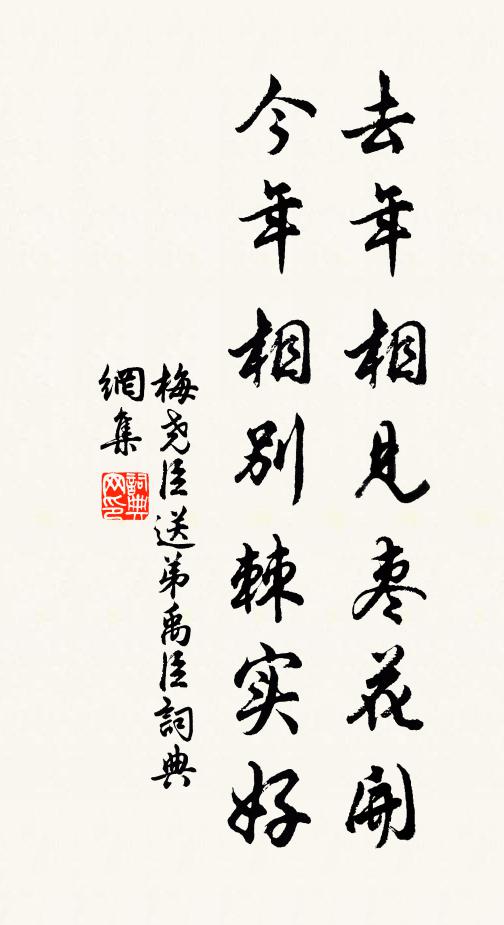 去年相见枣花開
今年相别棘实好
梅尧臣送弟禹臣詞典
網集
詞典网印